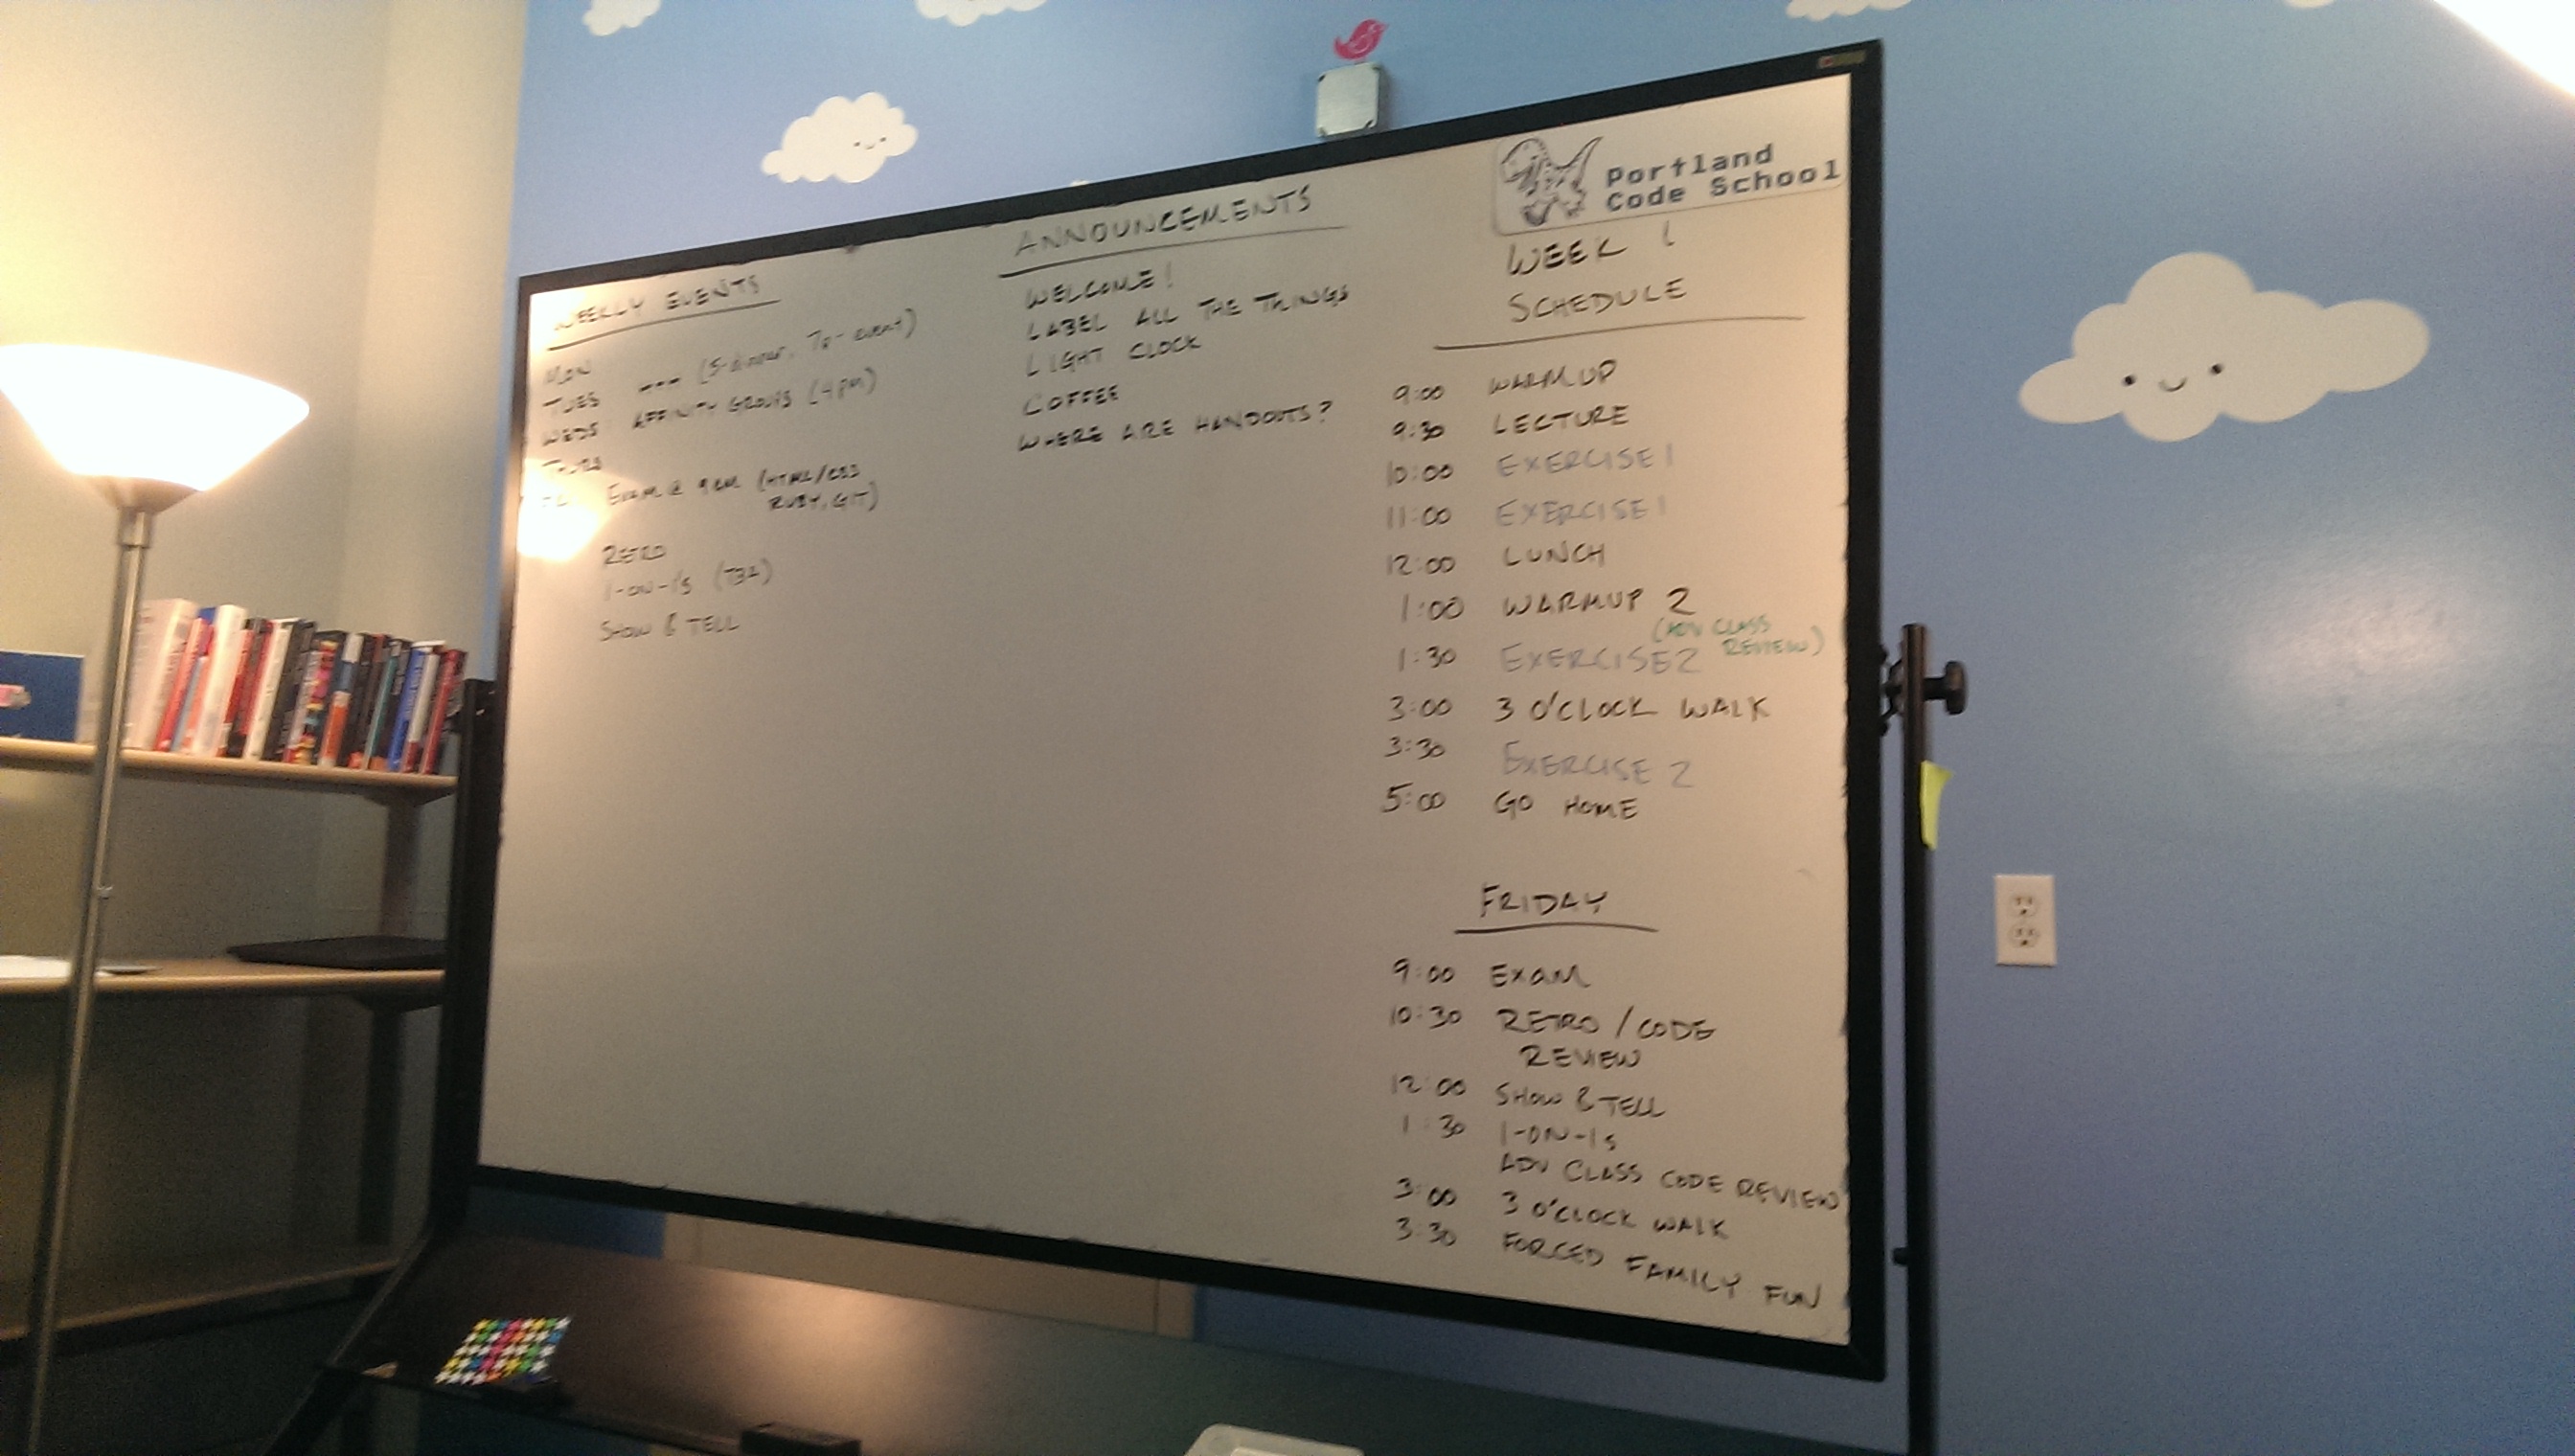 Portland
Code School
WEEKLY EVENTS
MON
TUES --- (5-dinner, 7p-event)
WEDS AFFINITY GROUPS (4pm)
THURS
EXAM @ 9AM (HTML/CSS
RUBY, GIT)
RETRO
1-ON-1s
SHOW & TELL
ANNOUNCEMENTS
WELCOME!
LABEL ALL THE THINGS
LIGHT CLOCK
COFFEE
WHERE ARE HANDOUTS?
WEEK 1
SCHEDULE
9:00 WARMUP
9:30 LECTURE
10:00 EXERCISE 1
11:00 EXERCISE 1
12:00 LUNCH
1:00 WARMUP 2
(ADV CLASS
REVIEW)
1:30 EXERCISE 2
3:00 3 O'CLOCK WALK
3:30 EXERCISE 2
5:00 GO HOME
FRIDAY
9:00 EXAM
10:30 RETRO / CODE
REVIEW
12:00 SHOW & TELL
1:30 1-ON-1s
ADV CLASS CODE REVIEW
3:00 3 O'CLOCK WALK
3:30 FORCED FAMILY FUN